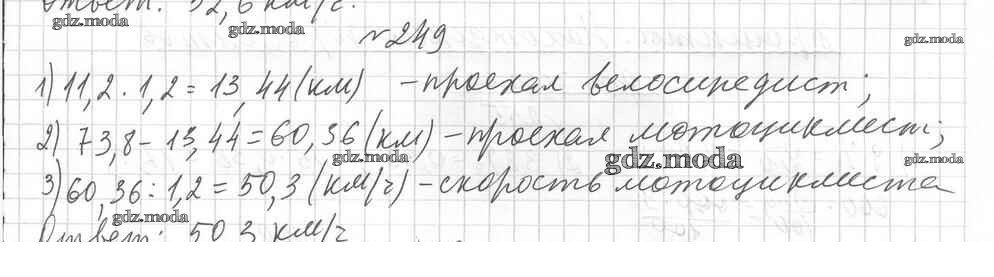 Ответ: 52,6 км/ч.
№249
1) 11,2 · 1,2 = 13,44 (км) – проехал велосипедист;
2) 73,8 – 13,44 = 60,36 (км) – проехал мотоциклист;
3) 60,36 : 1,2 = 50,3 (км/ч) – скорость мотоциклиста
Ответ: 50,3 км/ч
gdz.moda
gdz.moda
gdz.moda
gdz.moda
gdz.moda
gdz.moda
gdz.moda
gdz.moda
gdz.moda